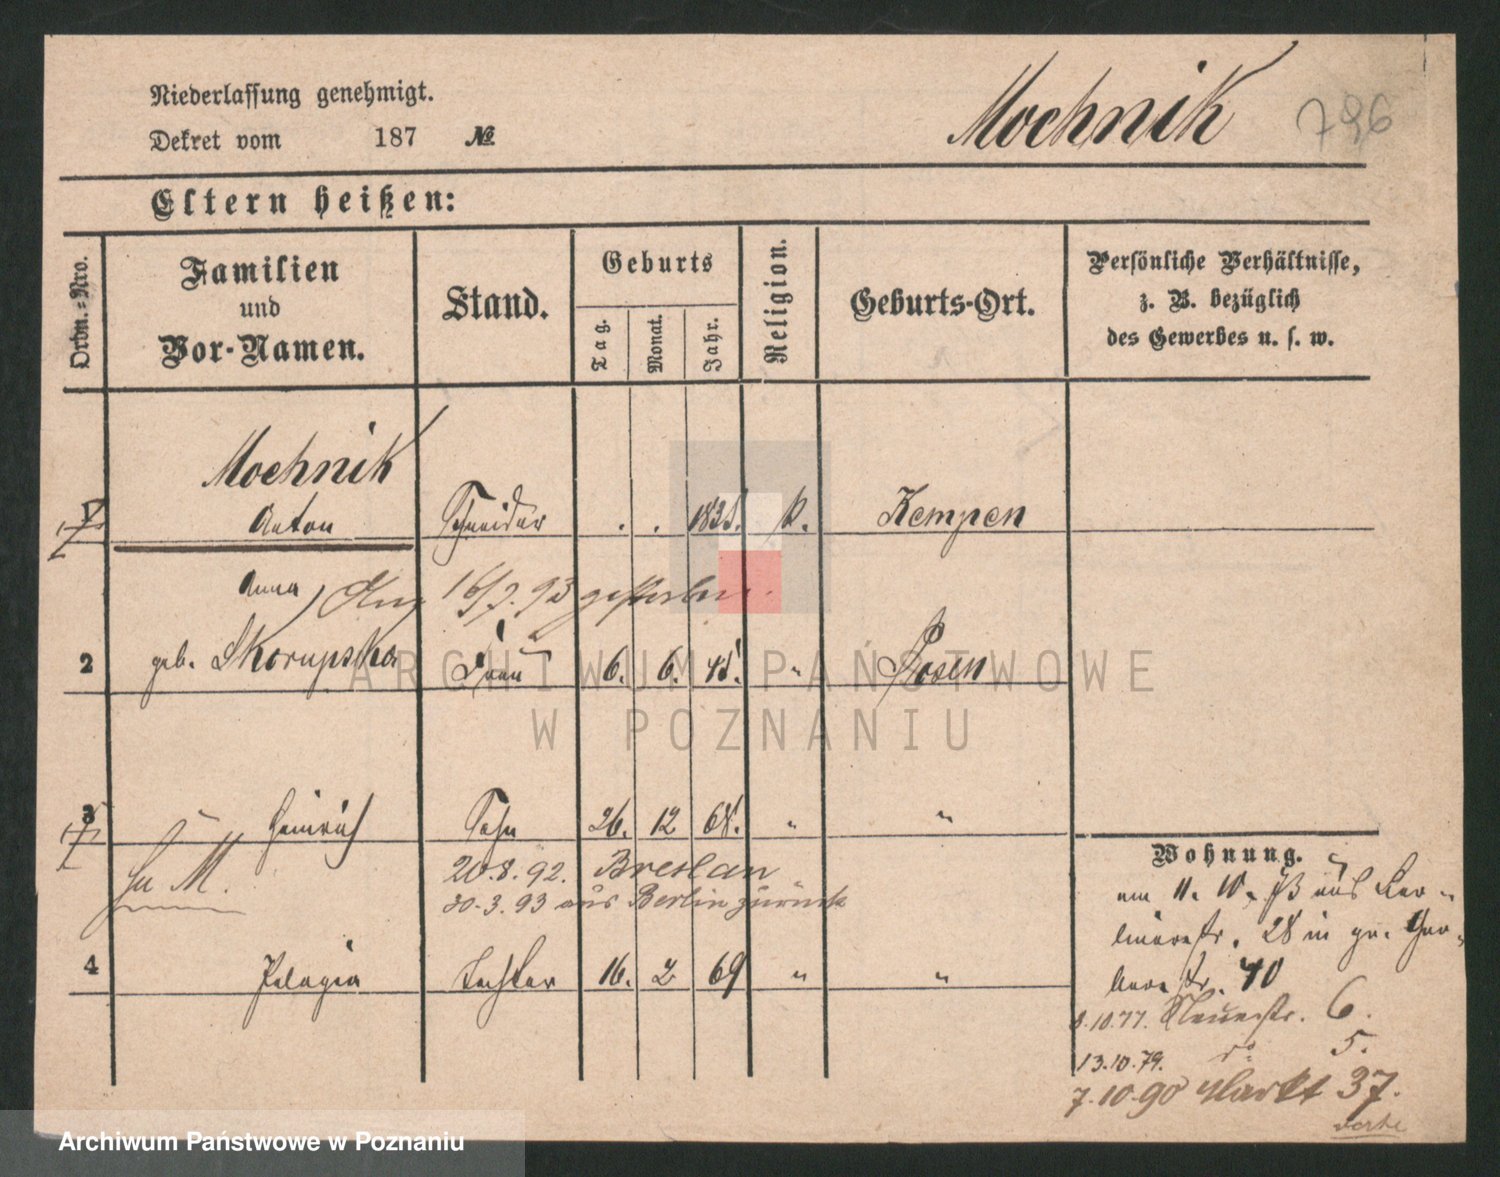 Niederlassung genehmigt.
Dekret vom 187 №
Mochnik 796
Eltern heißen:
Ordn.-Nro.
Familien
und
Vor-Namen.
Stand.
Geburts
Tag.
Monat.
Jahr.
Religion.
Geburts-Ort.
Persönliche Verhältnisse,
z. B. bezüglich
des Gewerbes u. s. w.
Mochnik
1 Anton Schneider . . 1838. k. Kempen
Anna 16/7. 93 gestorben.
2 geb. Skorupska Frau 6. 6. 45. " Posen
3 Heinrich Sohn 26. 12 68. " "
M. 20.8.92. Breslau
30.3.93 aus Berlin zurück
4 Pelagia Tochter 16. 2 69 " "
Wohnung.
am 11. 10. aus
28 in gr. Ger-
berstr. 40
8.10.77. 6.
13.10.79. do 5.
7.10.90 Markt 37.
ARCHIWUM PAŃSTWOWE
W POZNANIU
Archiwum Państwowe w Poznaniu